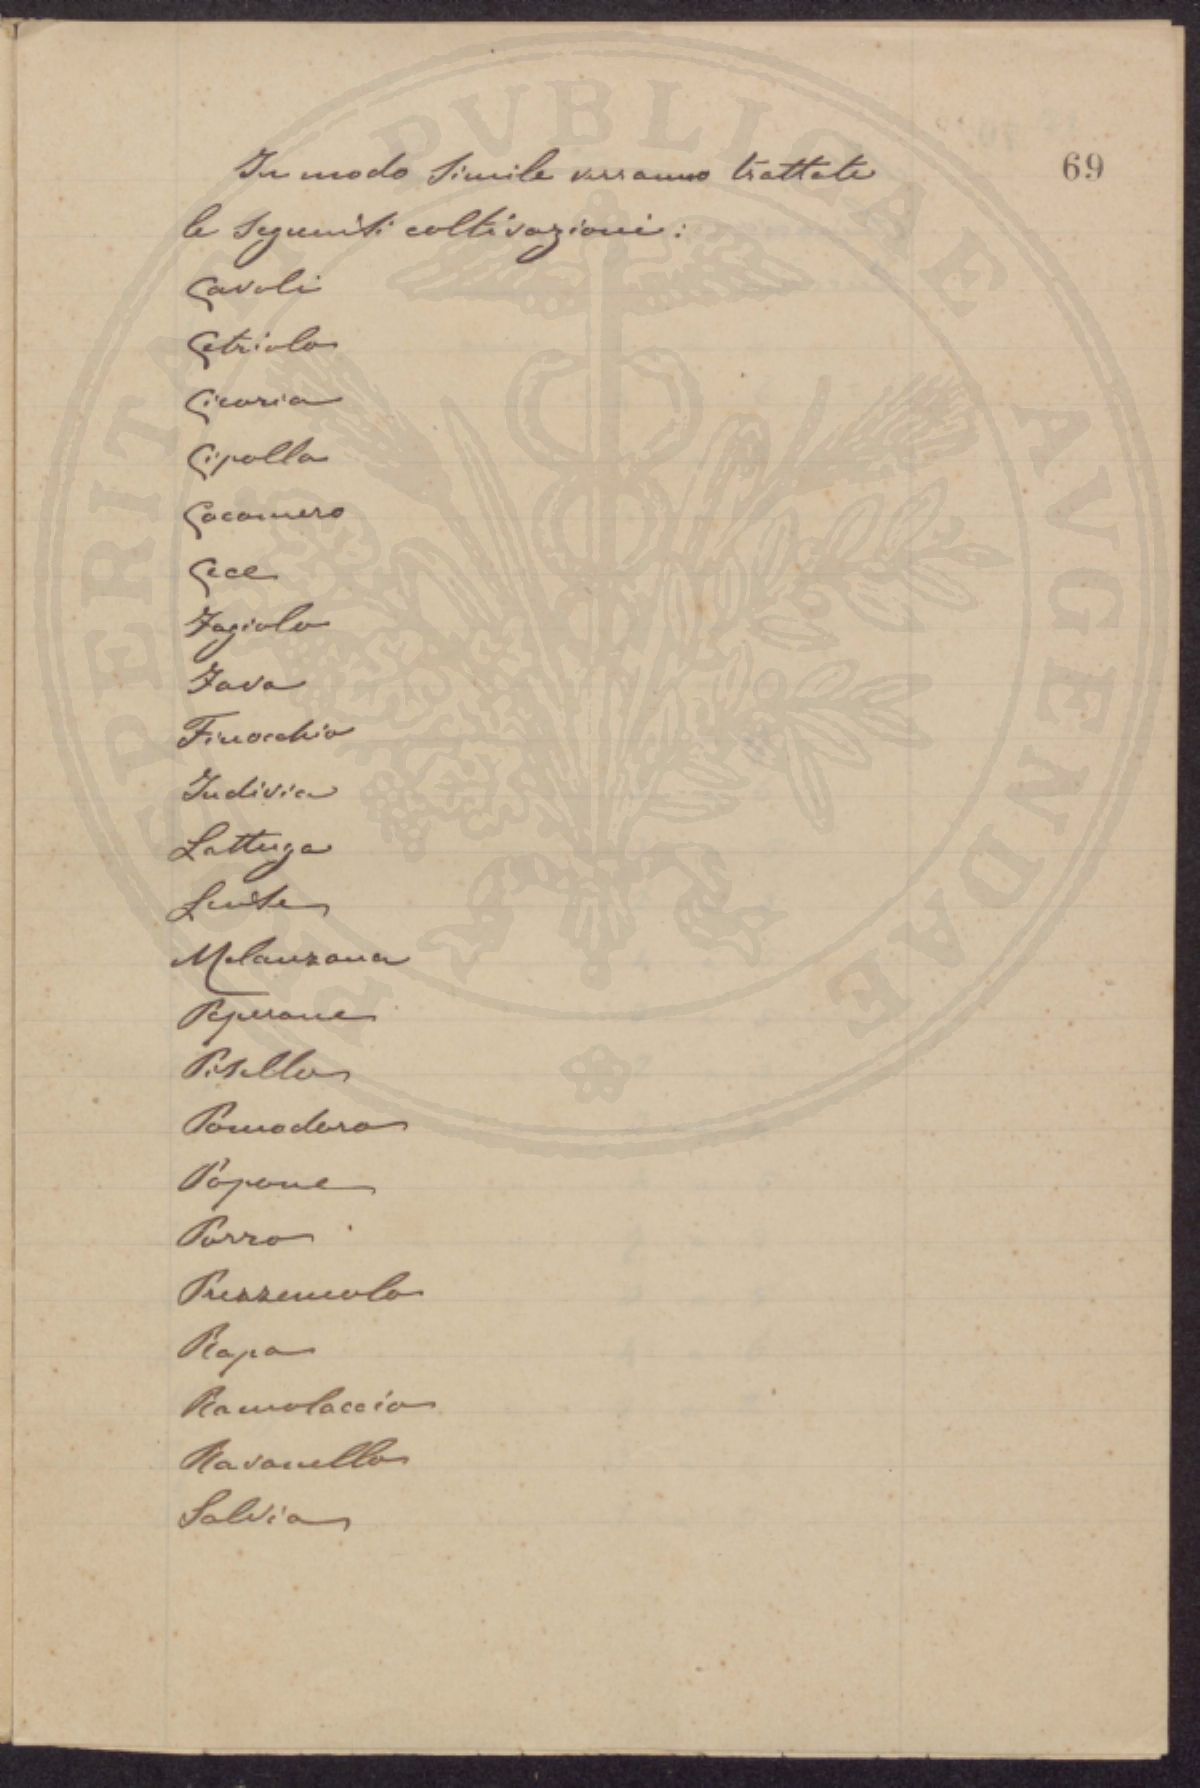 69
In modo simile verranno trattate
le seguenti coltivazioni:
Cavoli
Cetriolo
Cicoria
Cipolla
Cocomero
Cece
Fagiolo
Fava
Finocchio
Indivia
Lattuga
Lente
Melanzana
Peperone
Pisello
Pomodoro
Popone
Porro
Prezzemolo
Rapa
Ramolaccio
Ravanello
Salvia
PROSPERITATI PVBLICAE AVGENDAE